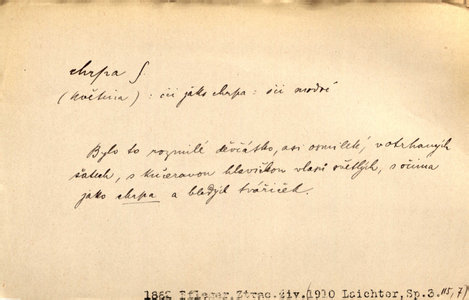 chrpa f.
(květina) : oči jako chrpa : oči modré
Bylo to rozmilé děvčátko, asi osmileté, v otrhaných
šatech, s kučeravou hlavičkou vlasů světlých, s očima
jako chrpa a bledých tvářiček.
1862 Pfleger, Ztrac. živ. /1910 Laichter, Sp. 3. 115, 7/